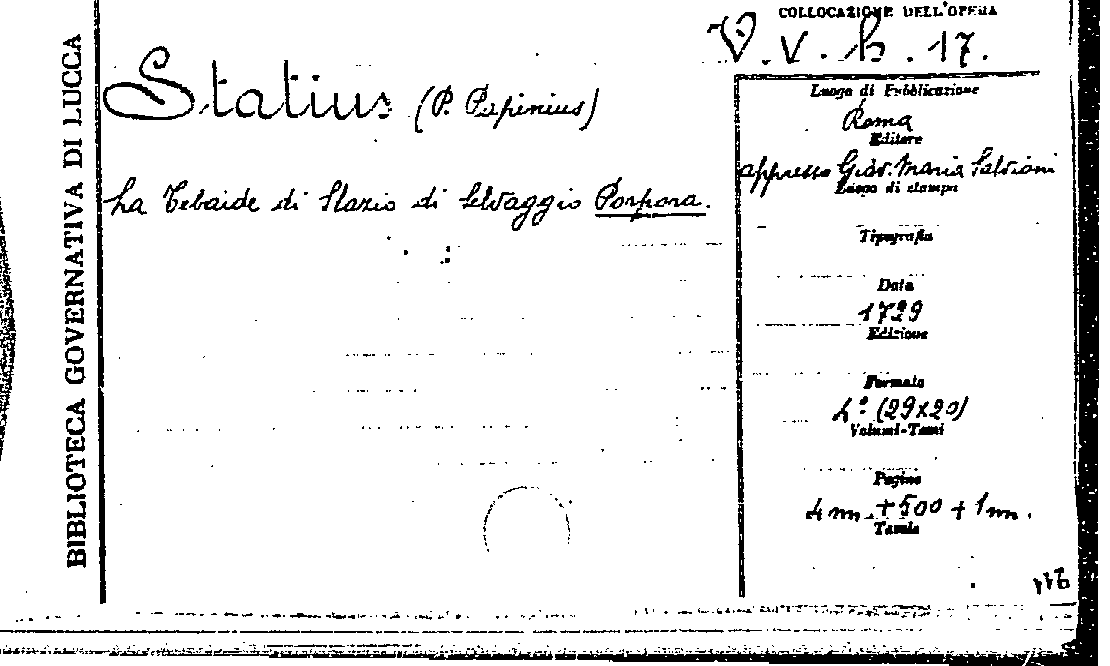 BIBLIOTECA GOVERNATIVA DI LUCCA
COLLOCAZIONE DELL'OPERA
V. V. h. 17.
Statius (P. Papinius)
La Tebaide di Stazio di Selvaggio Porpora.
Luogo di Pubblicazione
Roma
Editore
appresso Giov. Maria Salvioni
Luogo di stampa
Tipografia
Data
1729
Edizione
Formato
4° (29x20)
Volumi-Tomi
Pagine
4 nn. + 500 + 1 nn.
Tavole